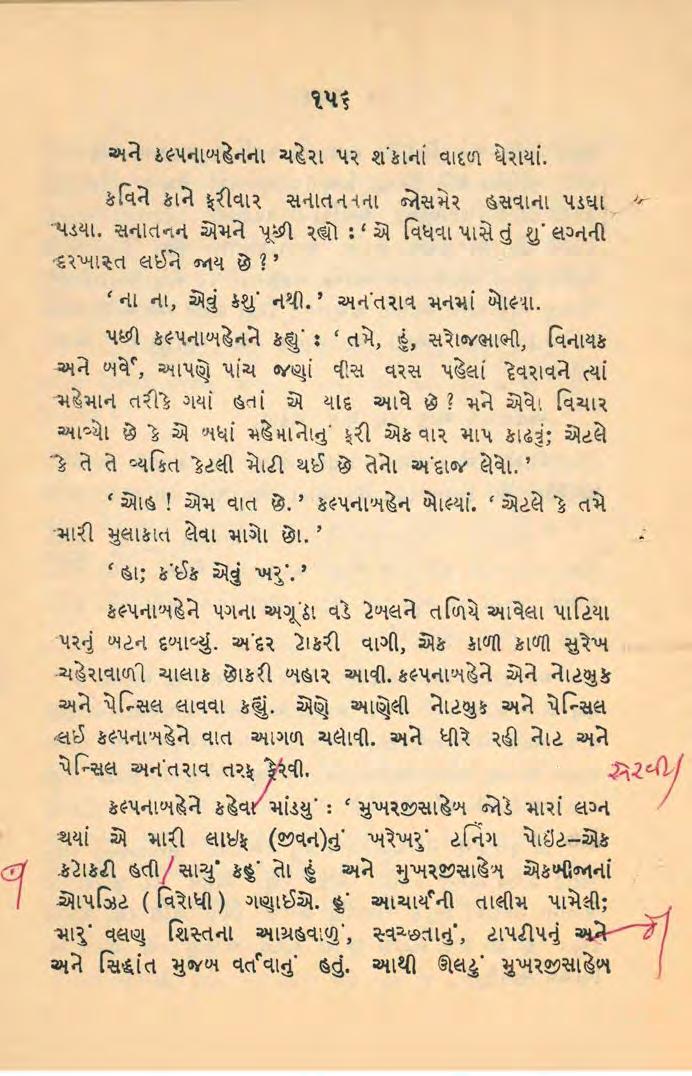 ૧૫૬
અને કલ્પનાબહેનના ચહેરા પર શંકાનાં વાદળ ઘેરાયાં.
કવિને કાને ફરીવાર સનાતનનના જોસમેર હસવાના પડઘા
પડયા. સનાતનન એમને પૂછી રહ્યો : ‘ એ વિધવા પાસે તું શું લગ્નની
દરખાસ્ત લઈને જાય છે ? ’
‘ ના ના, એવું કશું નથી. ’ અનંતરાવ મનમાં બોલ્યા.
પછી કલ્પનાબહેનને કહ્યું : ‘ તમે, હું, સરોજભાભી, વિનાયક
અને બર્વે, આપણે પાંચ જણાં વીસ વરસ પહેલાં દેવરાવને ત્યાં
મહેમાન તરીકે ગયાં હતાં એ યાદ આવે છે ? મને એવો વિચાર
આવ્યો છે કે એ બધાં મહેમાનોનું ફરી એક વાર માપ કાઢવું; એટલે
કે તે તે વ્યકિત કેટલી મોટી થઈ છે તેનો અંદાજ લેવો. ’
‘ ઓહ ! એમ વાત છે. ’ કલ્પનાબહેન બોલ્યાં. ‘ એટલે કે તમે
મારી મુલાકાત લેવા માગો છો. ’
‘ હા; કંઈક એવું ખરું. ’
કલ્પનાબહેને પગના અગૂંઠા વડે ટેબલને તળિયે આવેલા પાટિયા
પરનું બટન દબાવ્યું. અંદર ટોકરી વાગી, એક કાળી કાળી સુરેખ
ચહેરાવાળી ચાલાક છોકરી બહાર આવી. કલ્પનાબહેને એને નોટબુક
અને પેન્સિલ લાવવા કહ્યું. એણે આણેલી નોટબુક અને પેન્સિલ
લઈ કલ્પનાબહેને વાત આગળ ચલાવી. અને ધીરે રહી નોટ અને
પેન્સિલ અનંતરાવ તરફ ફેરવી. સેરવી
કલ્પનાબહેને કહેવા માંડયું : ‘ મુખરજીસાહેબ જોડે મારાં લગ્ન
થયાં એ મારી લાઇફ (જીવન)નું ખરેખરું ટર્નિંગ પોઇંટ–એક
કટોકટી હતી સાચું કહું તો હું અને મુખરજીસાહેબ એકબીજાનાં
ઓપઝિટ ( વિરોધી ) ગણાઈએ. હું આચાર્યની તાલીમ પામેલી;
મારું વલણ શિસ્તના આગ્રહવાળું, સ્વચ્છતાનું, ટાપટીપનું અને
અને સિદ્ધાંત મુજબ વર્તવાનું હતું. આથી ઊલટું મુખરજીસાહેબ